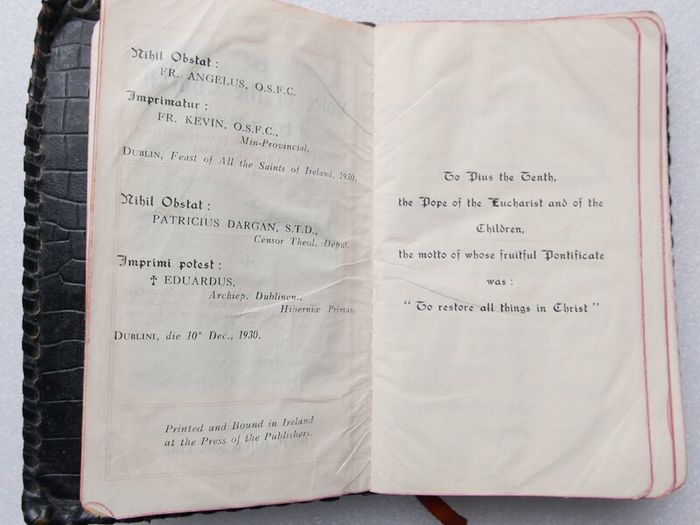 Nihil Obstat :
FR. ANGELUS, O.S.F.C.
Imprimatur :
FR. KEVIN, O.S.F.C.,
Min-Provincial.
DUBLIN, Feast of All the Saints of Ireland, 1930.
Nihil Obstat :
PATRICIUS DARGAN, S.T.D.,
Censor Theol. Deput.
Imprimi potest :
✝ EDUARDUS,
Archiep. Dublinen.,
Hiberniæ Primas.
DUBLINI, die 10ª Dec., 1930.
Printed and Bound in Ireland
at the Press of the Publishers.
To Pius the Tenth,
the Pope of the Eucharist and of the
Children,
the motto of whose fruitful Pontificate
was :
“ To restore all things in Christ ”